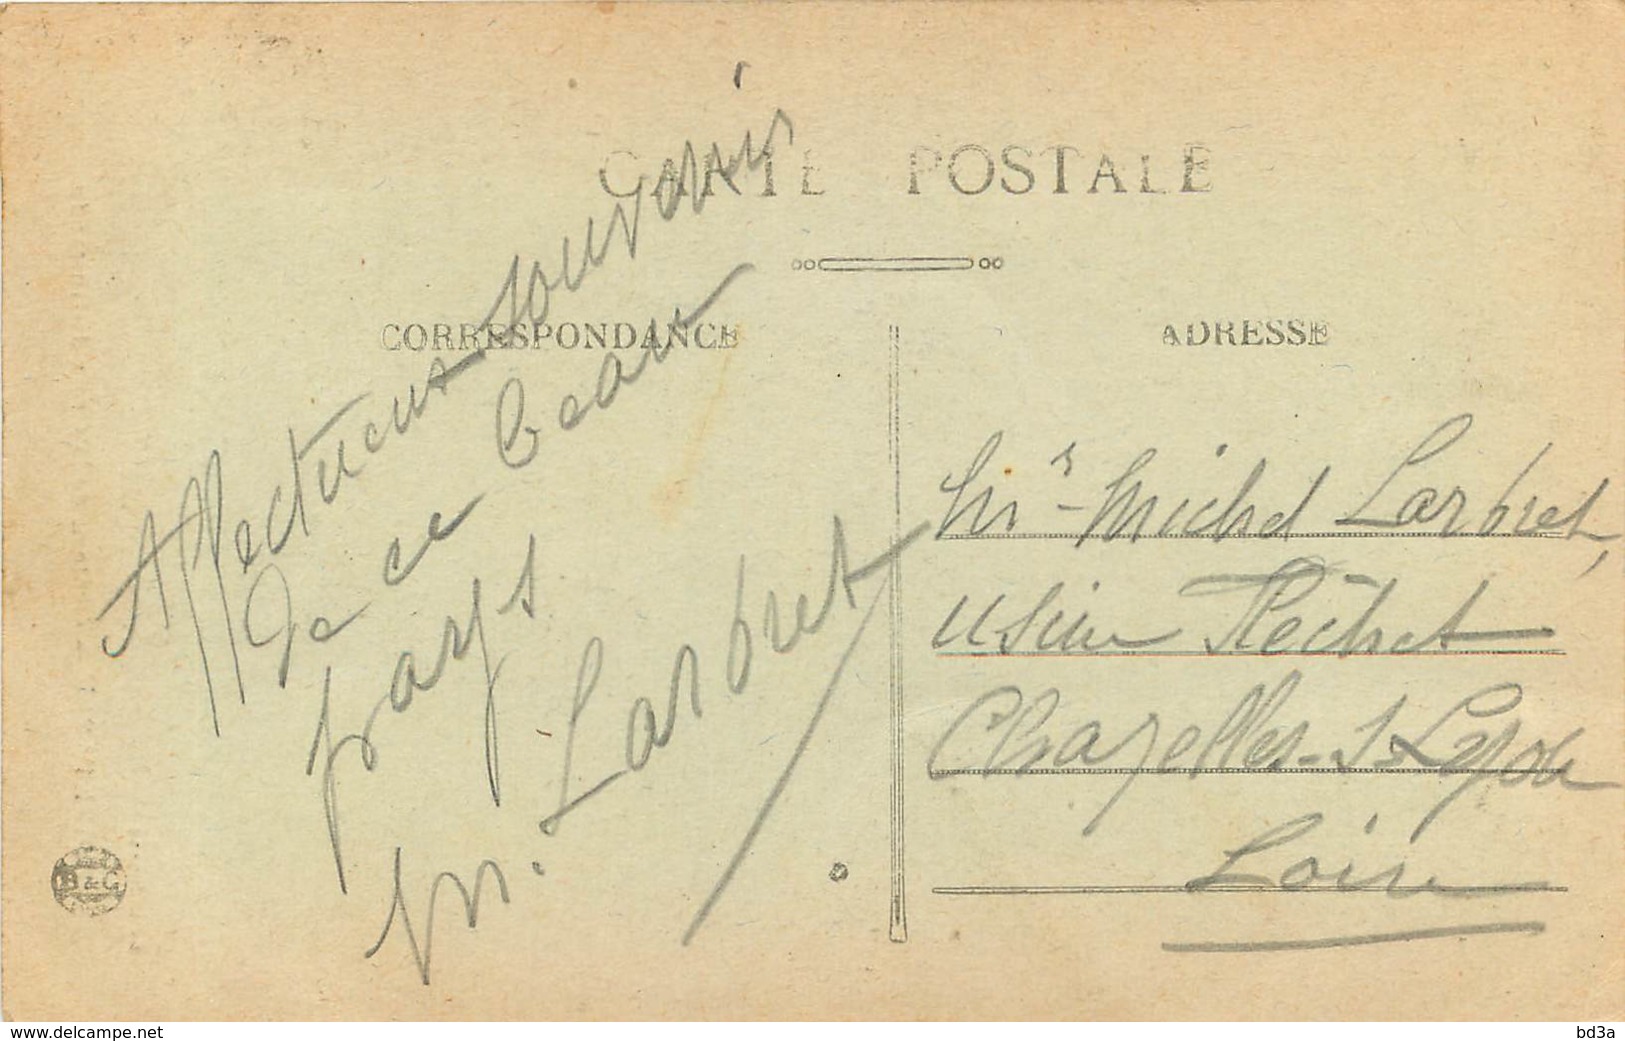 CARTE POSTALE
CORRESPONDANCE
ADRESSE
Affectueux souvenir
de ce beau
pays
M. Larbret
Mr Michel Larbret,
usine
Chazelles-s-Lyon
Loire
B & C
www.delcampe.net
bd3a